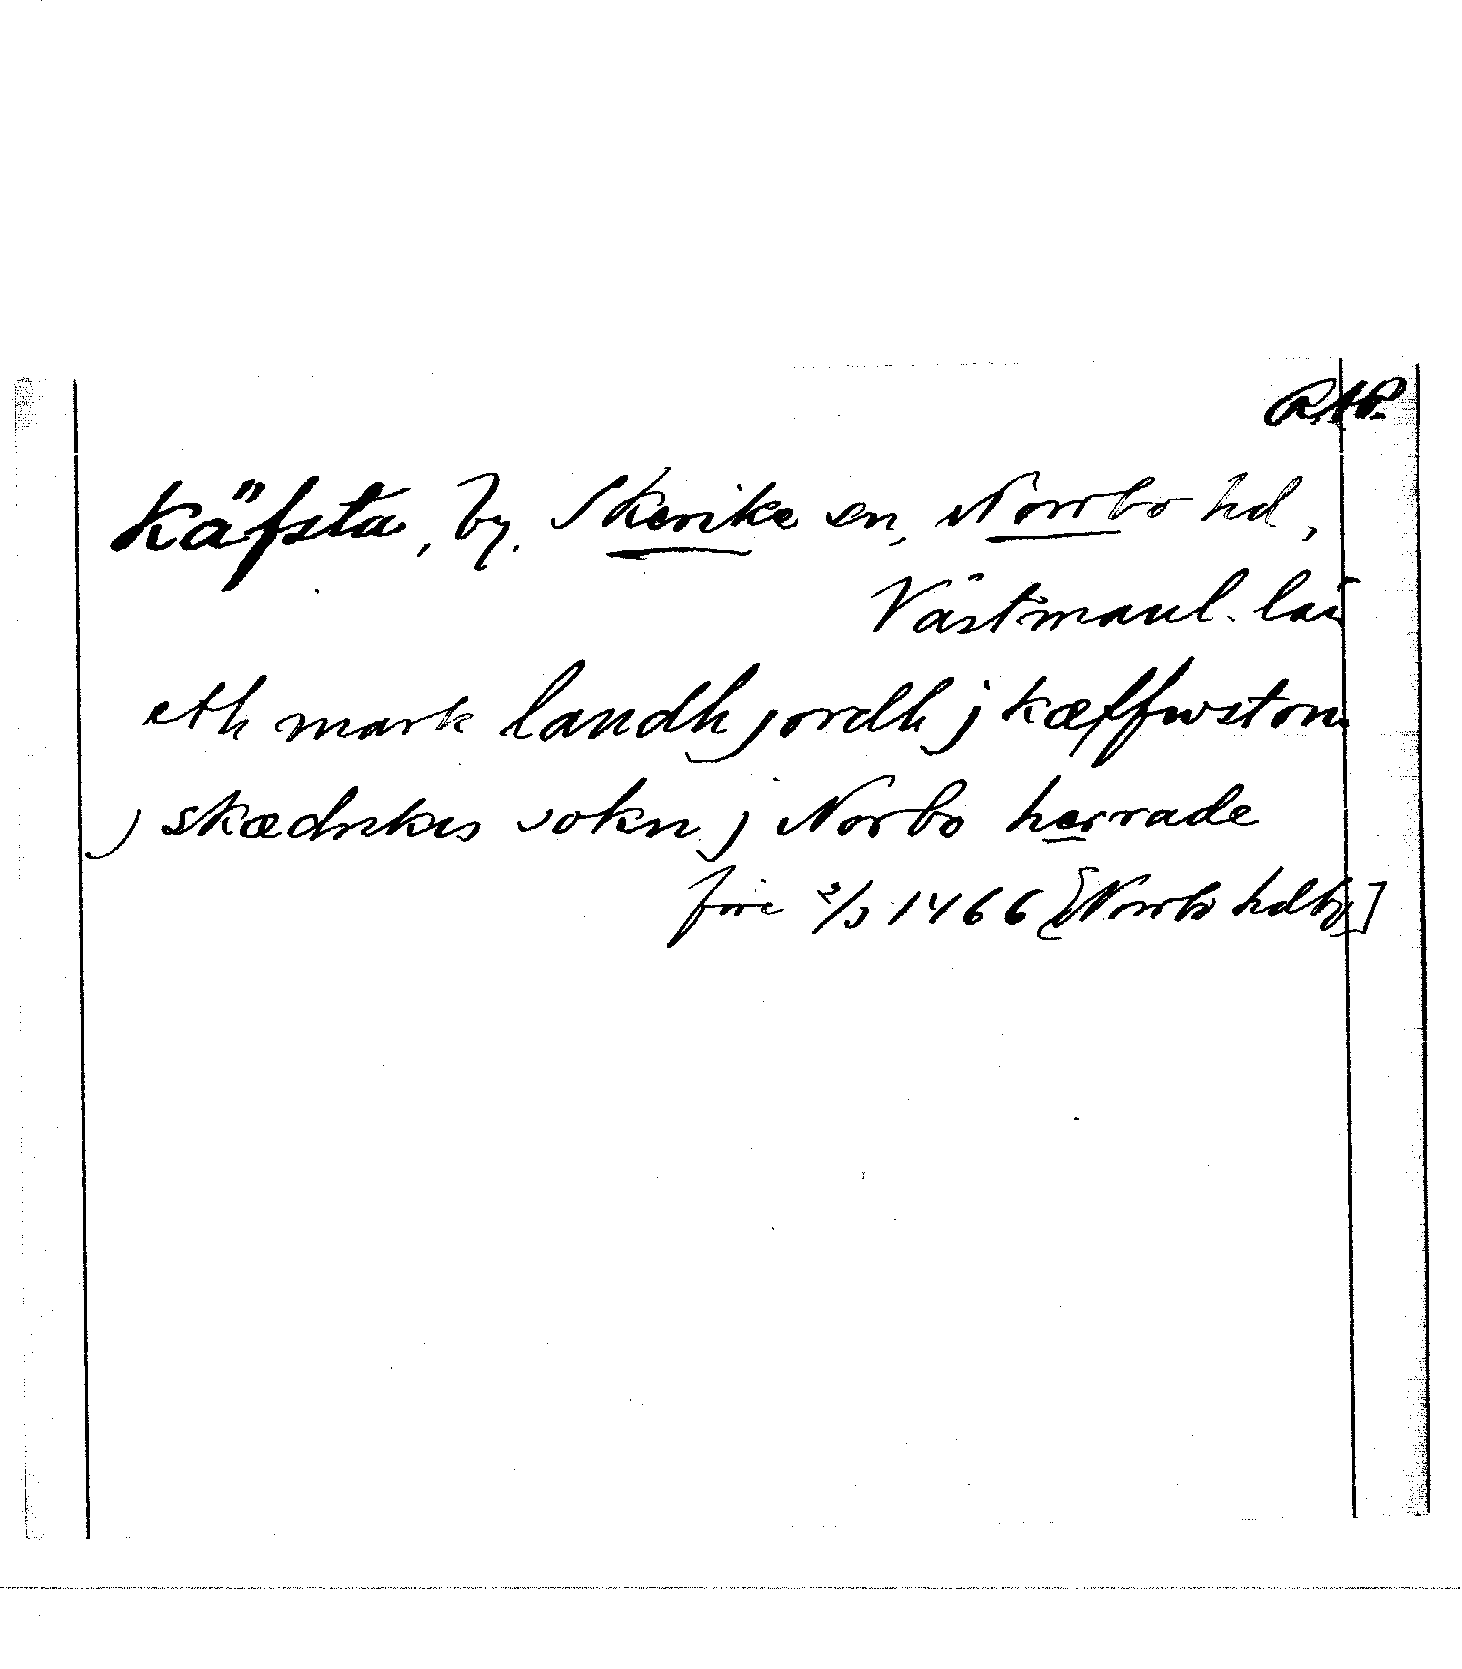 RAP.
Käfsta, by. Skerike sn, Norrbo hd,
Västmanl. län
eth mark landh jordh j kæffwstom
j skædrikis sokn j Norbo herrade
före 2/3 1466 [Norrbo hdby]